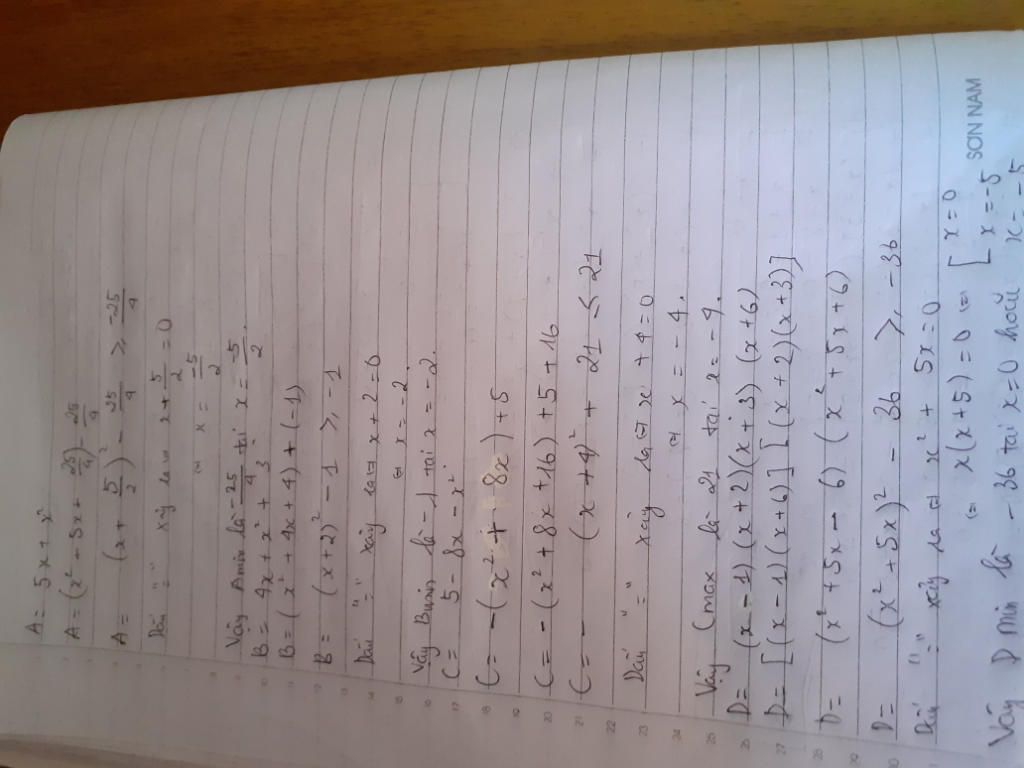 A = 5x + x²
A = (x² - 5x + 25/4) - 25/4
A = (x + 5/2)² - 25/4 ≥ -25/4
Dấu "=" xảy ra ⇔ x + 5/2 = 0
⇔ x = -5/2
Vậy Amin là -25/4 tại x = -5/2.
B = 4x + x² + 3
B = (x² + 4x + 4) + (-1)
B = (x + 2)² - 1 ≥ -1
Dấu "=" xảy ra ⇔ x + 2 = 0
⇔ x = -2.
Vậy Bmin là -1 tại x = -2.
C = 5 - 8x - x²
C = -(x² + 8x) + 5
C = -(x² + 8x + 16) + 5 + 16
C = -(x + 4)² + 21 ≤ 21
Dấu "=" xảy ra ⇔ x + 4 = 0
⇔ x = -4.
Vậy Cmax là 21 tại x = -4.
D = (x - 1)(x + 2)(x + 3)(x + 6)
D = [(x - 1)(x + 6)][(x + 2)(x + 3)]
D = (x² + 5x - 6)(x² + 5x + 6)
D = (x² + 5x)² - 36 ≥ -36
Dấu "=" xảy ra ⇔ x² + 5x = 0
⇔ x(x + 5) = 0 ⇔ [ x = 0
[ x = -5
Vậy D Min là -36 tại x = 0 hoặc x = -5
SON NAM